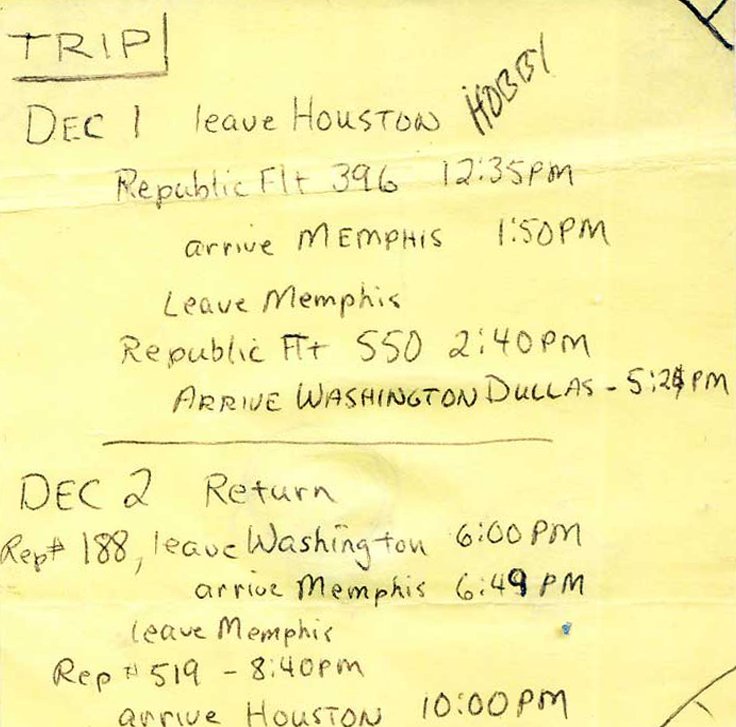 TRIP
DEC 1 leave HOUSTON HOBBY
Republic Flt 396 12:35PM
arrive MEMPHIS 1:50PM
Leave Memphis
Republic Flt 550 2:40PM
ARRIVE WASHINGTON DULLAS - 5:24PM
DEC 2 Return
Rep# 188, leave Washington 6:00PM
arrive Memphis 6:49 PM
leave Memphis
Rep # 519 - 8:40pm
arrive Houston 10:00PM